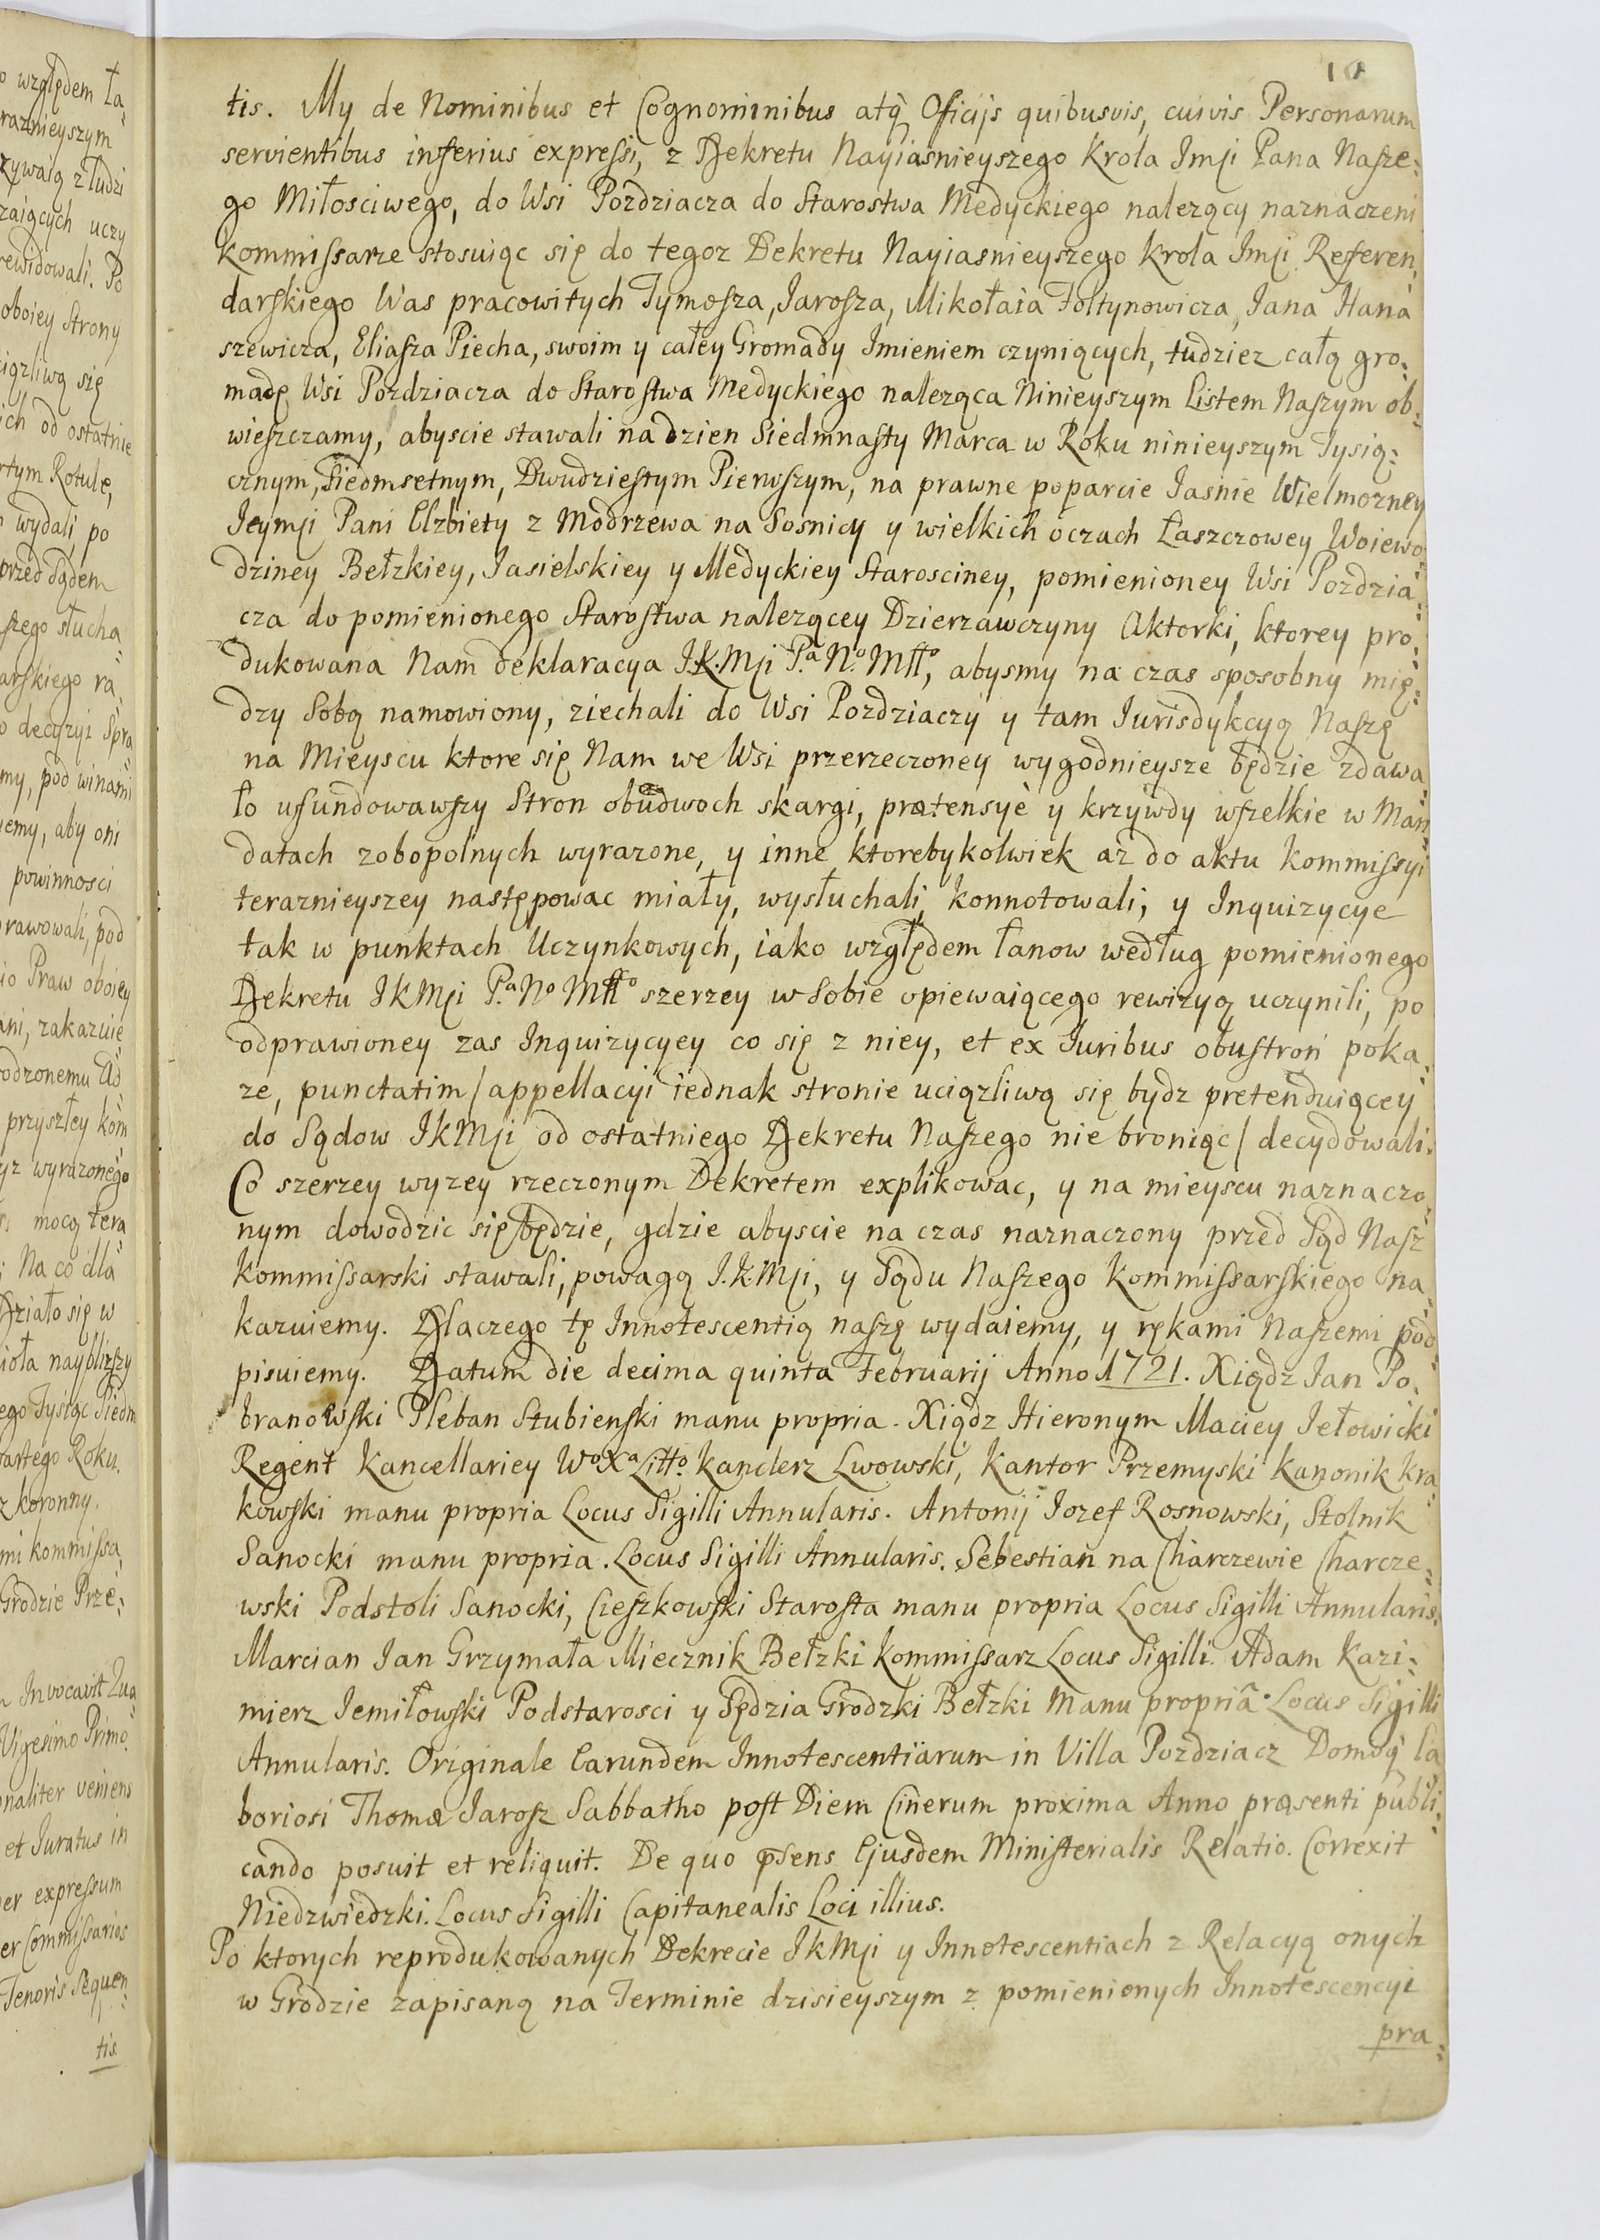 10
tis. My de Nominibus et Cognominibus atq̀ Officijs quibusvis, cuivis Personarum
servientibus inferius expressi, z Dekretu Nayiasnieyszego Krola Jmji Pana Nasze:
go Miłosciwego, do Wsi Pozdziacza do Starostwa Medyckiego nalezący naznaczeni
Kommissarze stosuiąc się do tegoz Dekretu Nayiasnieyszego Krola Jmji Referen:
darskiego Was pracowitych Tymosza, Jarosza, Mikołaia Foltynowicza, Jana Hana
szewicza, Eliasza Piecha, swoim y całey Gromady Jmieniem czyniących, tudziez całą gro:
madę Wsi Pozdziacza do Starostwa Medyckiego naleząca Ninieyszym Listem Naszym ob:
wieszczamy, abyscie stawali na dzien Siedmnasty Marca w Roku ninieyszym Tysią:
cznym, Siedmsetnym, Dwudziestym Pierwszym, na prawne poparcie Jasnie Wielmozney
Jeymji Pani Elzbiety z Modrzewa na Sosnicy y wielkich oczach Łaszczowey Woiewo:
dziney Bełzkiey, Jasielskiey y Medyckiey Starosciney, pomienioney Wsi Pozdzia:
cza do pomienionego Starostwa nalezącey Dzierzawczyny Aktorki, ktorey pro:
dukowana Nam deklaracya J.K.Mji P.a N.o Mtto, abysmy na czas sposobny mię:
dzy Sobą namowiony, ziechali do Wsi Pozdziaczy y tam Jurisdykcyą Naszę
na Mieyscu ktore się Nam we Wsi przerzeczoney wygodnieysze będzie zdawa:
ło ufundowawszy Stron obudwoch skargi, prætensyè y krzywdy wszelkie w Man:
datach zobopolnych wyrazone, y inne ktorebykolwiek az do aktu Kommissyi
teraznieyszey następowac miały, wysłuchali, konnotowali, y Inquizycye
tak w punktach Uczynkowych, iako względem łanow według pomienionego
Dekretu JKMji P.a No Mtto szerzey w Sobie opiewaiącego rewizyą uczynili, po
odprawioney zas Inquizycyey co się z niey, et ex Juribus obustron poka:
ze, punctatim / appellacyi iednak stronie uciązliwą się bydz pretenduiącey
do Sądow JKMji od ostatniego Dekretu Naszego nie broniąc / decydowali.
Co szerzey wyzey rzeczonym Dekretem explikowac, y na mieyscu naznaczo:
nym dowodzic się będzie, gdzie abyscie na czas naznaczony przed Sąd Nasz
Kommissarski stawali, powagą J.K.Mji, y Sądu Naszego Kommissarskiego na:
kazuiemy. Dlaczego tę Innotescentią naszę wydaiemy, y rękami Naszemi pod:
pisuiemy. Datum die decima quinta Februarij Anno 1721. Xiądz Jan Po:
branowski Pleban Stubienski manu propria. Xiądz Hieronym Maciey Jełowicki
Regent Kancellariey Wo Xa Litto. Kanclerz Lwowski, Kantor Przemyski Kanonik Kra:
kowski manu propria Locus Sigilli Annularis. Antonij Jozef Rosnowski, Stolnik
Sanocki manu propria. Locus Sigilli Annularis. Sebestian na Charczewie Charcze:
wski Podstoli Sanocki, Cieszkowski Starosta manu propria Locus Sigilli Annularis.
Marcian Jan Grzymała Miecznik Bełzki Kommissarz Locus Sigilli. Adam Kazi:
mierz Jemiłowski Podstarosci y Sędzia Grodzki Bełzki Manu propriâ. Locus Sigilli
Annularis. Originale Earundem Innotescentiarum in Villa Pozdziacz Domoq̀ La
boriosi Thomæ Jarosz Sabbatho post Diem Cinerum proxima Anno præsenti publi:
cando posuit et reliquit. De quo p̄sens Ejusdem Ministerialis Relatio. Correxit
Niedzwiedzki. Locus Sigilli Capitanealis Loci illius.
Po ktorych reprodukowanych Dekrecie JKMji y Innotescentiach z Relacyą onych
w Grodzie zapisaną na Terminie dzisieyszym z pomienionych Innotescencyi
pra: